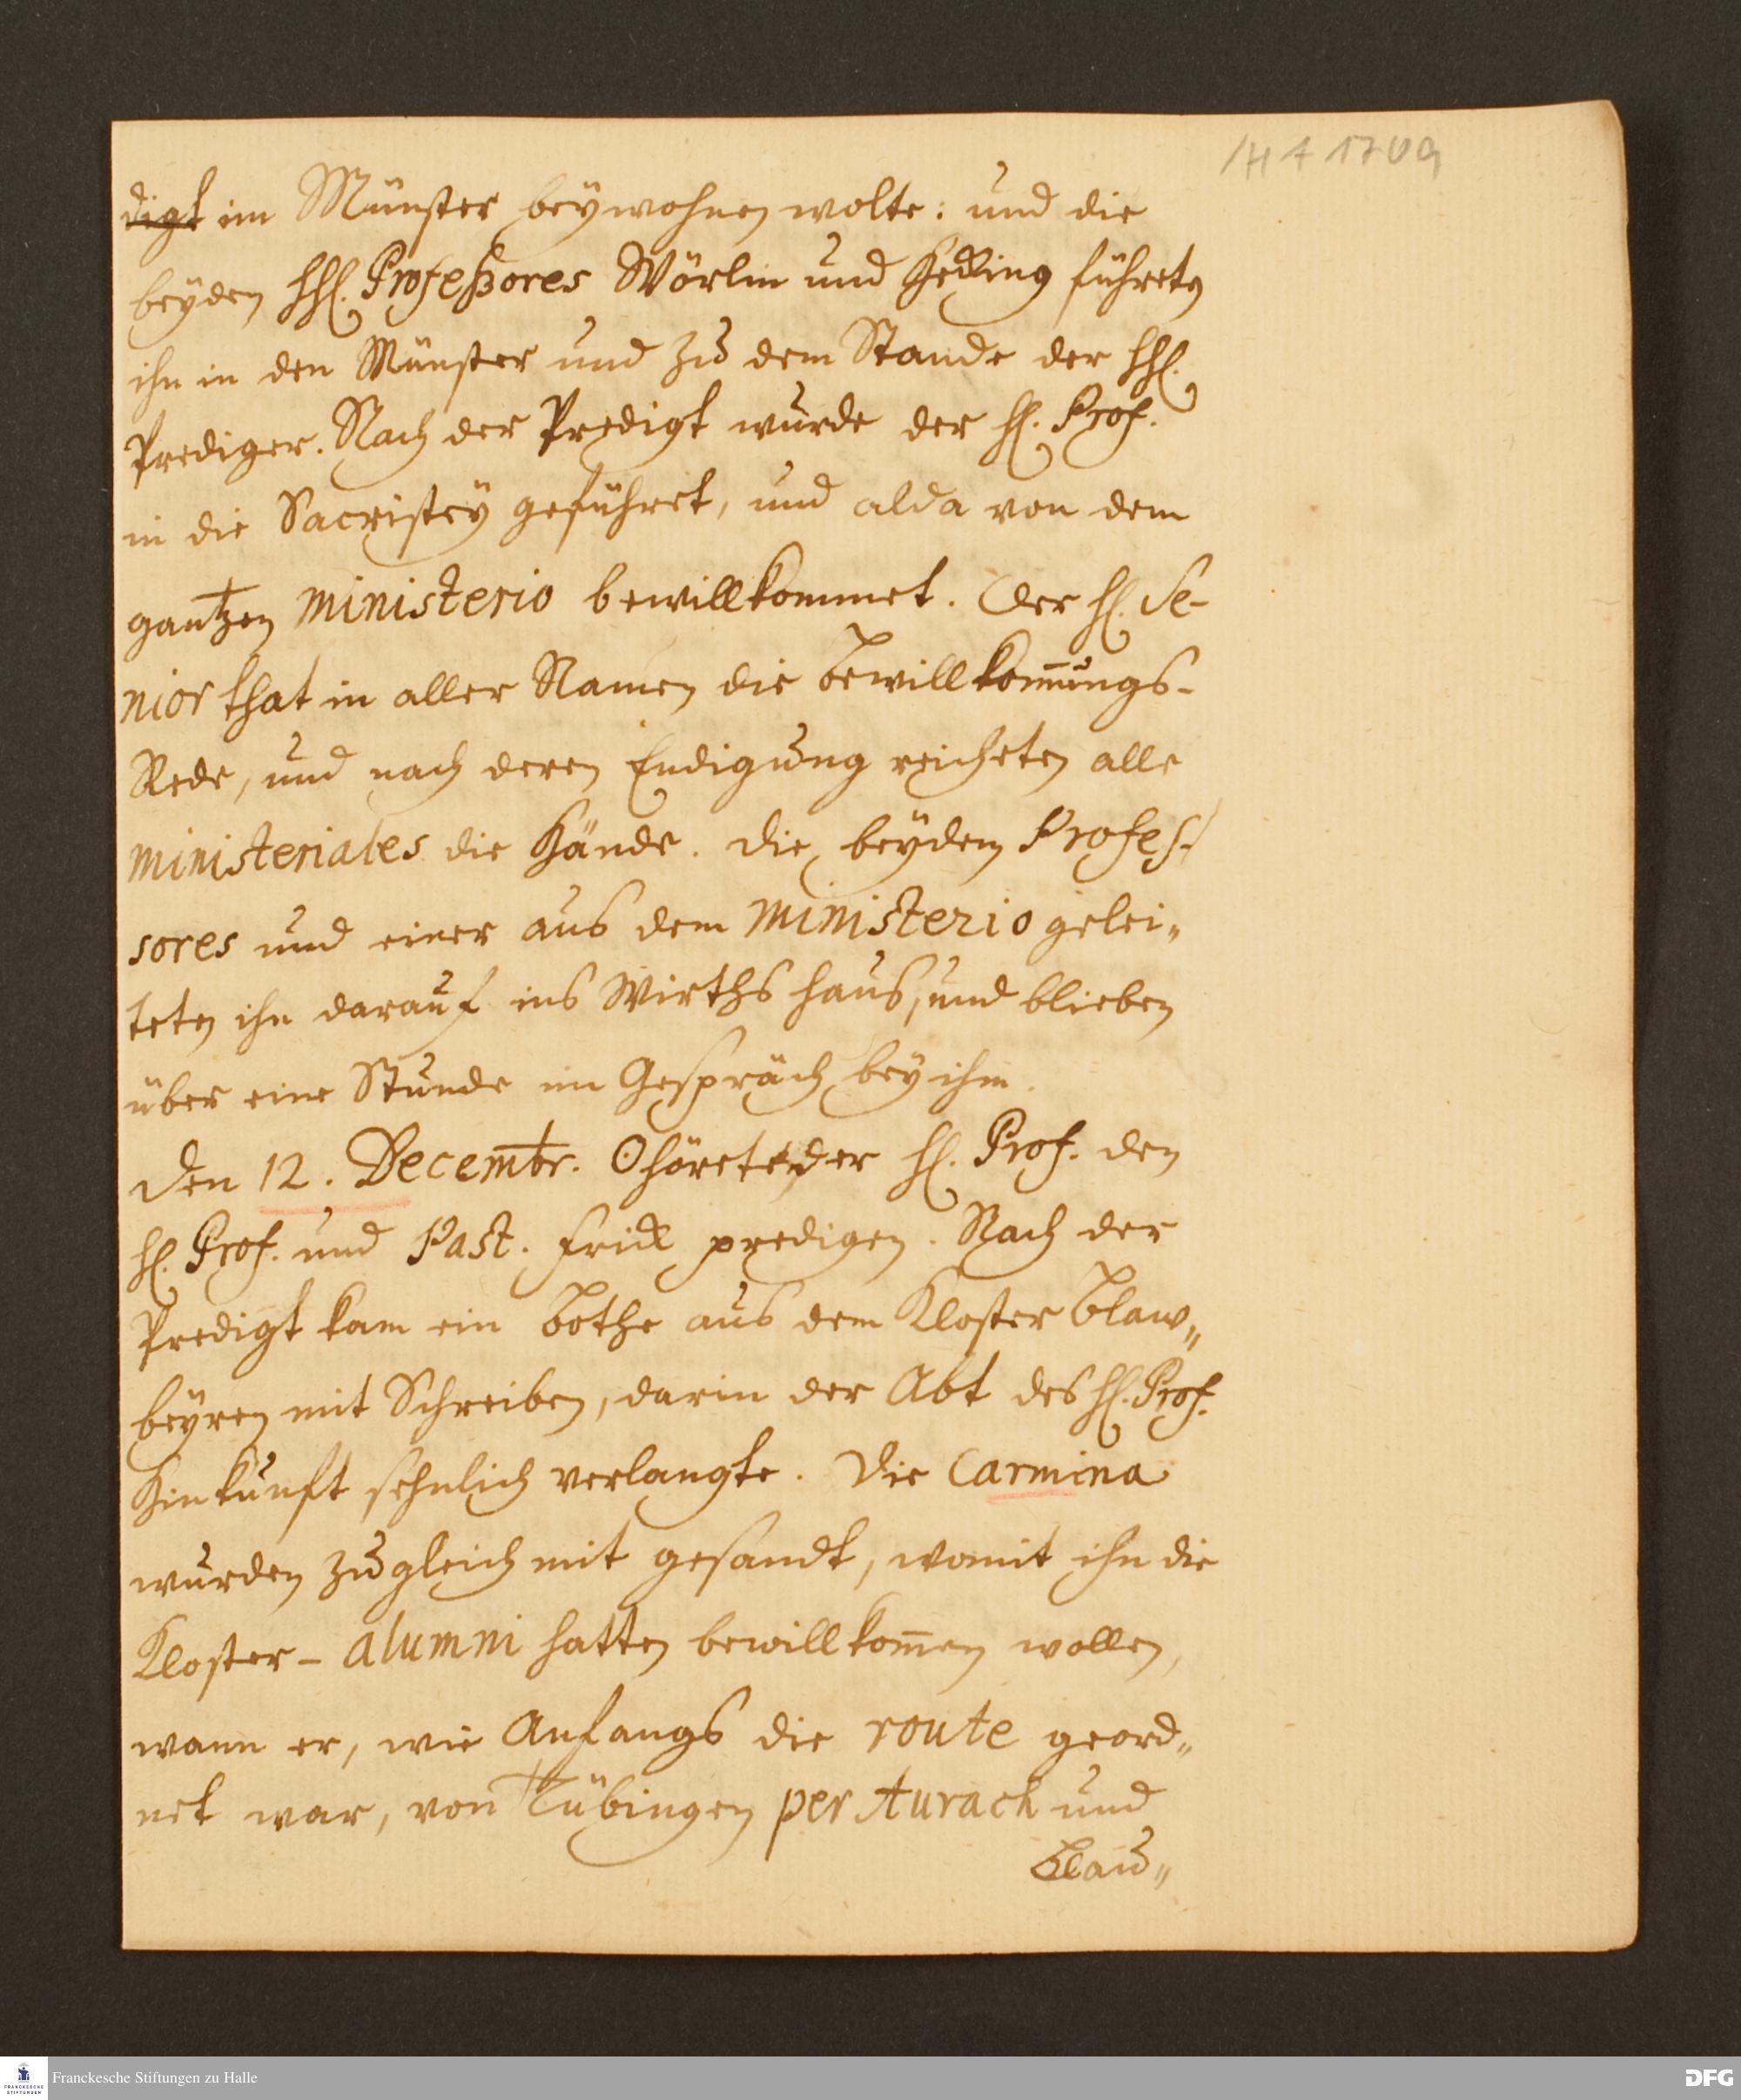 digt im Münster beywohnen wolte: und die
beyden HH. Profeßores Wörlin und Hecking führeten
ihn in den Münster und zu dem Stande der HH.
Prediger. Nach der Predigt wurde der H. Prof.
in die Sacristey geführet, und alda von dem
gantzen Ministerio bewillkommet. Der H. Se-
nior that in aller Namen die Bewillkom̄ungs-
Rede, und nach deren Endigung reicheten alle
Ministeriales die Hände. Die beyden Profes-
sores und einer aus dem Ministerio gelei„
teten ihn darauf ins Wirthshaus, und blieben
über eine Stunde im Gespräch bey ihm.
Den 12. Decembr. hörete der H. Prof. den
H. Prof. und Past. Frick predigen. Nach der
Predigt kam ein Bothe aus dem Kloster Blaw„
beyren mit Schreiben, darin der Abt des H. Prof.
Hinkunft sehnlich verlangte. Die Carmina
wurden zugleich mit gesandt, womit ihn die
Kloster-Alumni hatten bewillkom̄en wollen,
wann er, wie Anfangs die route geord„
net war, von Tübingen per Aurach und
Blau„
Franckesche Stiftungen zu Halle
DFG